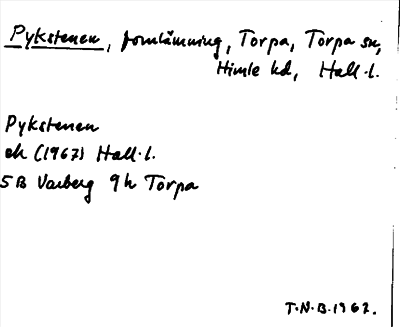 Pykstenen, fornlämning, Torpa, Torpa sn,
Himle hd, Hall.l.
Pykstenen
ek (1967) Hall.l.
5B Varberg 9h Torpa
T.N.B.1967.